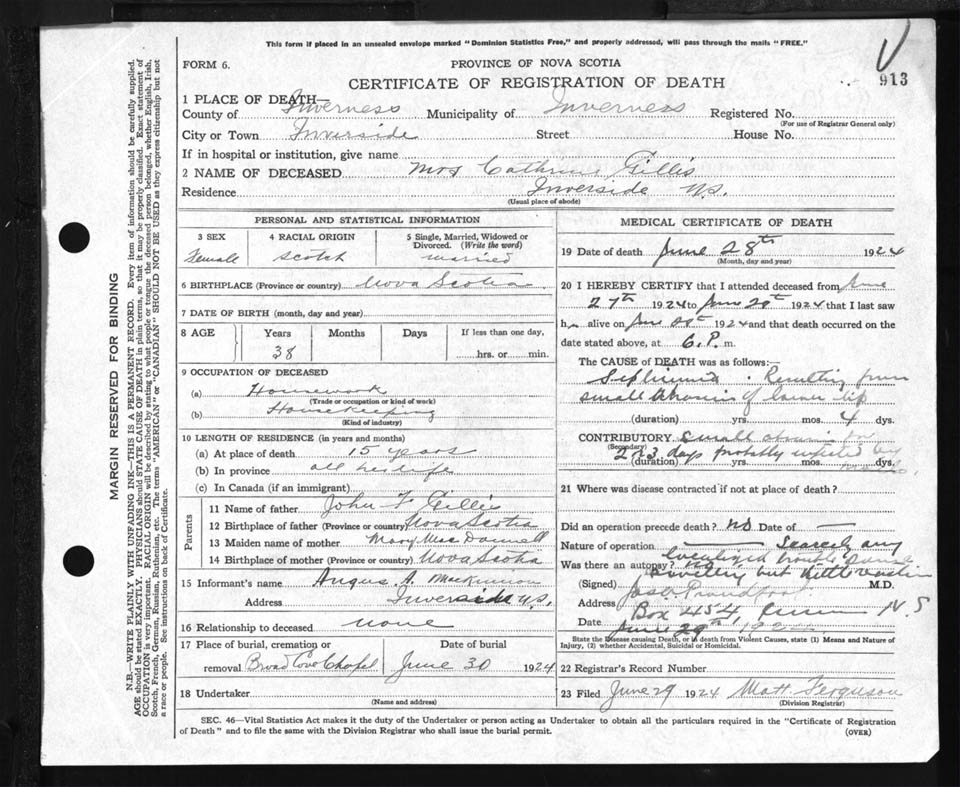 This form if placed in an unsealed envelope marked "Dominion Statistics Free," and properly addressed, will pass through the mails "FREE."
FORM 6.
PROVINCE OF NOVA SCOTIA
CERTIFICATE OF REGISTRATION OF DEATH
913
1 PLACE OF DEATH—
County of Inverness Municipality of Inverness Registered No.
(For use of Registrar General only)
City or Town Inverside Street House No.
If in hospital or institution, give name
2 NAME OF DECEASED Mrs Cathrine Gillis
Residence Inverside N.S.
(Usual place of abode)
PERSONAL AND STATISTICAL INFORMATION
3 SEX 4 RACIAL ORIGIN 5 Single, Married, Widowed or Divorced. (Write the word)
Female Scotch married
6 BIRTHPLACE (Province or country) Nova Scotia
7 DATE OF BIRTH (month, day and year)
8 AGE Years Months Days If less than one day,
38 hrs. or min.
9 OCCUPATION OF DECEASED
(a) Housework
(Trade or occupation or kind of work)
(b) Housekeeping
(Kind of industry)
10 LENGTH OF RESIDENCE (in years and months)
(a) At place of death 15 years
(b) In province all her life
(c) In Canada (if an immigrant)
Parents
11 Name of father John F Gillis
12 Birthplace of father (Province or country) Nova Scotia
13 Maiden name of mother Mary MacDonnell
14 Birthplace of mother (Province or country) Nova Scotia
15 Informant's name Angus A. MacKinnon
Address Inverside N.S.
16 Relationship to deceased none
17 Place of burial, cremation or removal Date of burial
Broad Cove Chapel June 30 1924
18 Undertaker
(Name and address)
MEDICAL CERTIFICATE OF DEATH
19 Date of death June 28th 1924
(Month, day and year)
20 I HEREBY CERTIFY that I attended deceased from June
27th 1924 to June 28th 1924 that I last saw
h alive on June 1924 and that death occurred on the
date stated above, at 6. P. m.
The CAUSE of DEATH was as follows:—
Resulting from
small of lower lip
(duration) yrs. mos. 4 dys.
CONTRIBUTORY small
(Secondary)
2 or 3 days probably infected by
(duration) yrs. mos. dys.
21 Where was disease contracted if not at place of death?
Did an operation precede death? No Date of —
Nature of operation —
Was there an autopsy?
(Signed) Proudfoot M.D.
Address Box 454, N.S
Date June 29th,
State the Disease causing Death, or in death from Violent Causes, state (1) Means and Nature of Injury, (2) whether Accidental, Suicidal or Homicidal.
22 Registrar's Record Number
23 Filed June 29 1924 Matt. Ferguson
(Division Registrar)
SEC. 46—Vital Statistics Act makes it the duty of the Undertaker or person acting as Undertaker to obtain all the particulars required in the "Certificate of Registration
of Death" and to file the same with the Division Registrar who shall issue the burial permit.
(OVER)
MARGIN RESERVED FOR BINDING
N.B.—WRITE PLAINLY WITH UNFADING INK—THIS IS A PERMANENT RECORD. Every item of information should be carefully supplied.
AGE should be stated EXACTLY. PHYSICIANS should STATE CAUSE OF DEATH in plain terms, so that it may be properly classified. Exact statement of
OCCUPATION is very important. RACIAL ORIGIN will be described by stating to what people or tongue the deceased person belonged, whether English, Irish,
Scotch, French, German, Russian, Ruthenian, etc. The terms "AMERICAN" or "CANADIAN" SHOULD NOT BE USED as they express citizenship but not
a race or people. See instructions on back of Certificate.